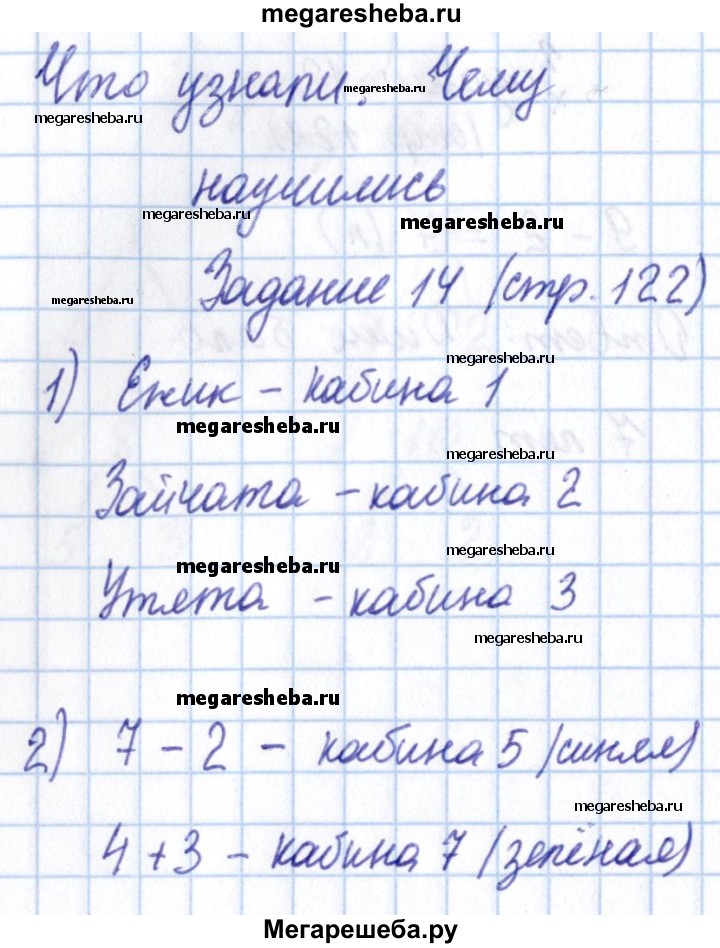 megaresheba.ru
Что узнали. Чему
megaresheba.ru
megaresheba.ru
научились
megaresheba.ru
megaresheba.ru
Задание 14 (стр. 122)
megaresheba.ru
megaresheba.ru
1) Ежик - кабина 1
megaresheba.ru
megaresheba.ru
Зайчата - кабина 2
megaresheba.ru
megaresheba.ru
Утята - кабина 3
megaresheba.ru
megaresheba.ru
2) 7 - 2 - кабина 5 (синяя)
megaresheba.ru
4 + 3 - кабина 7 (зелёная)
Мегарешеба.ру